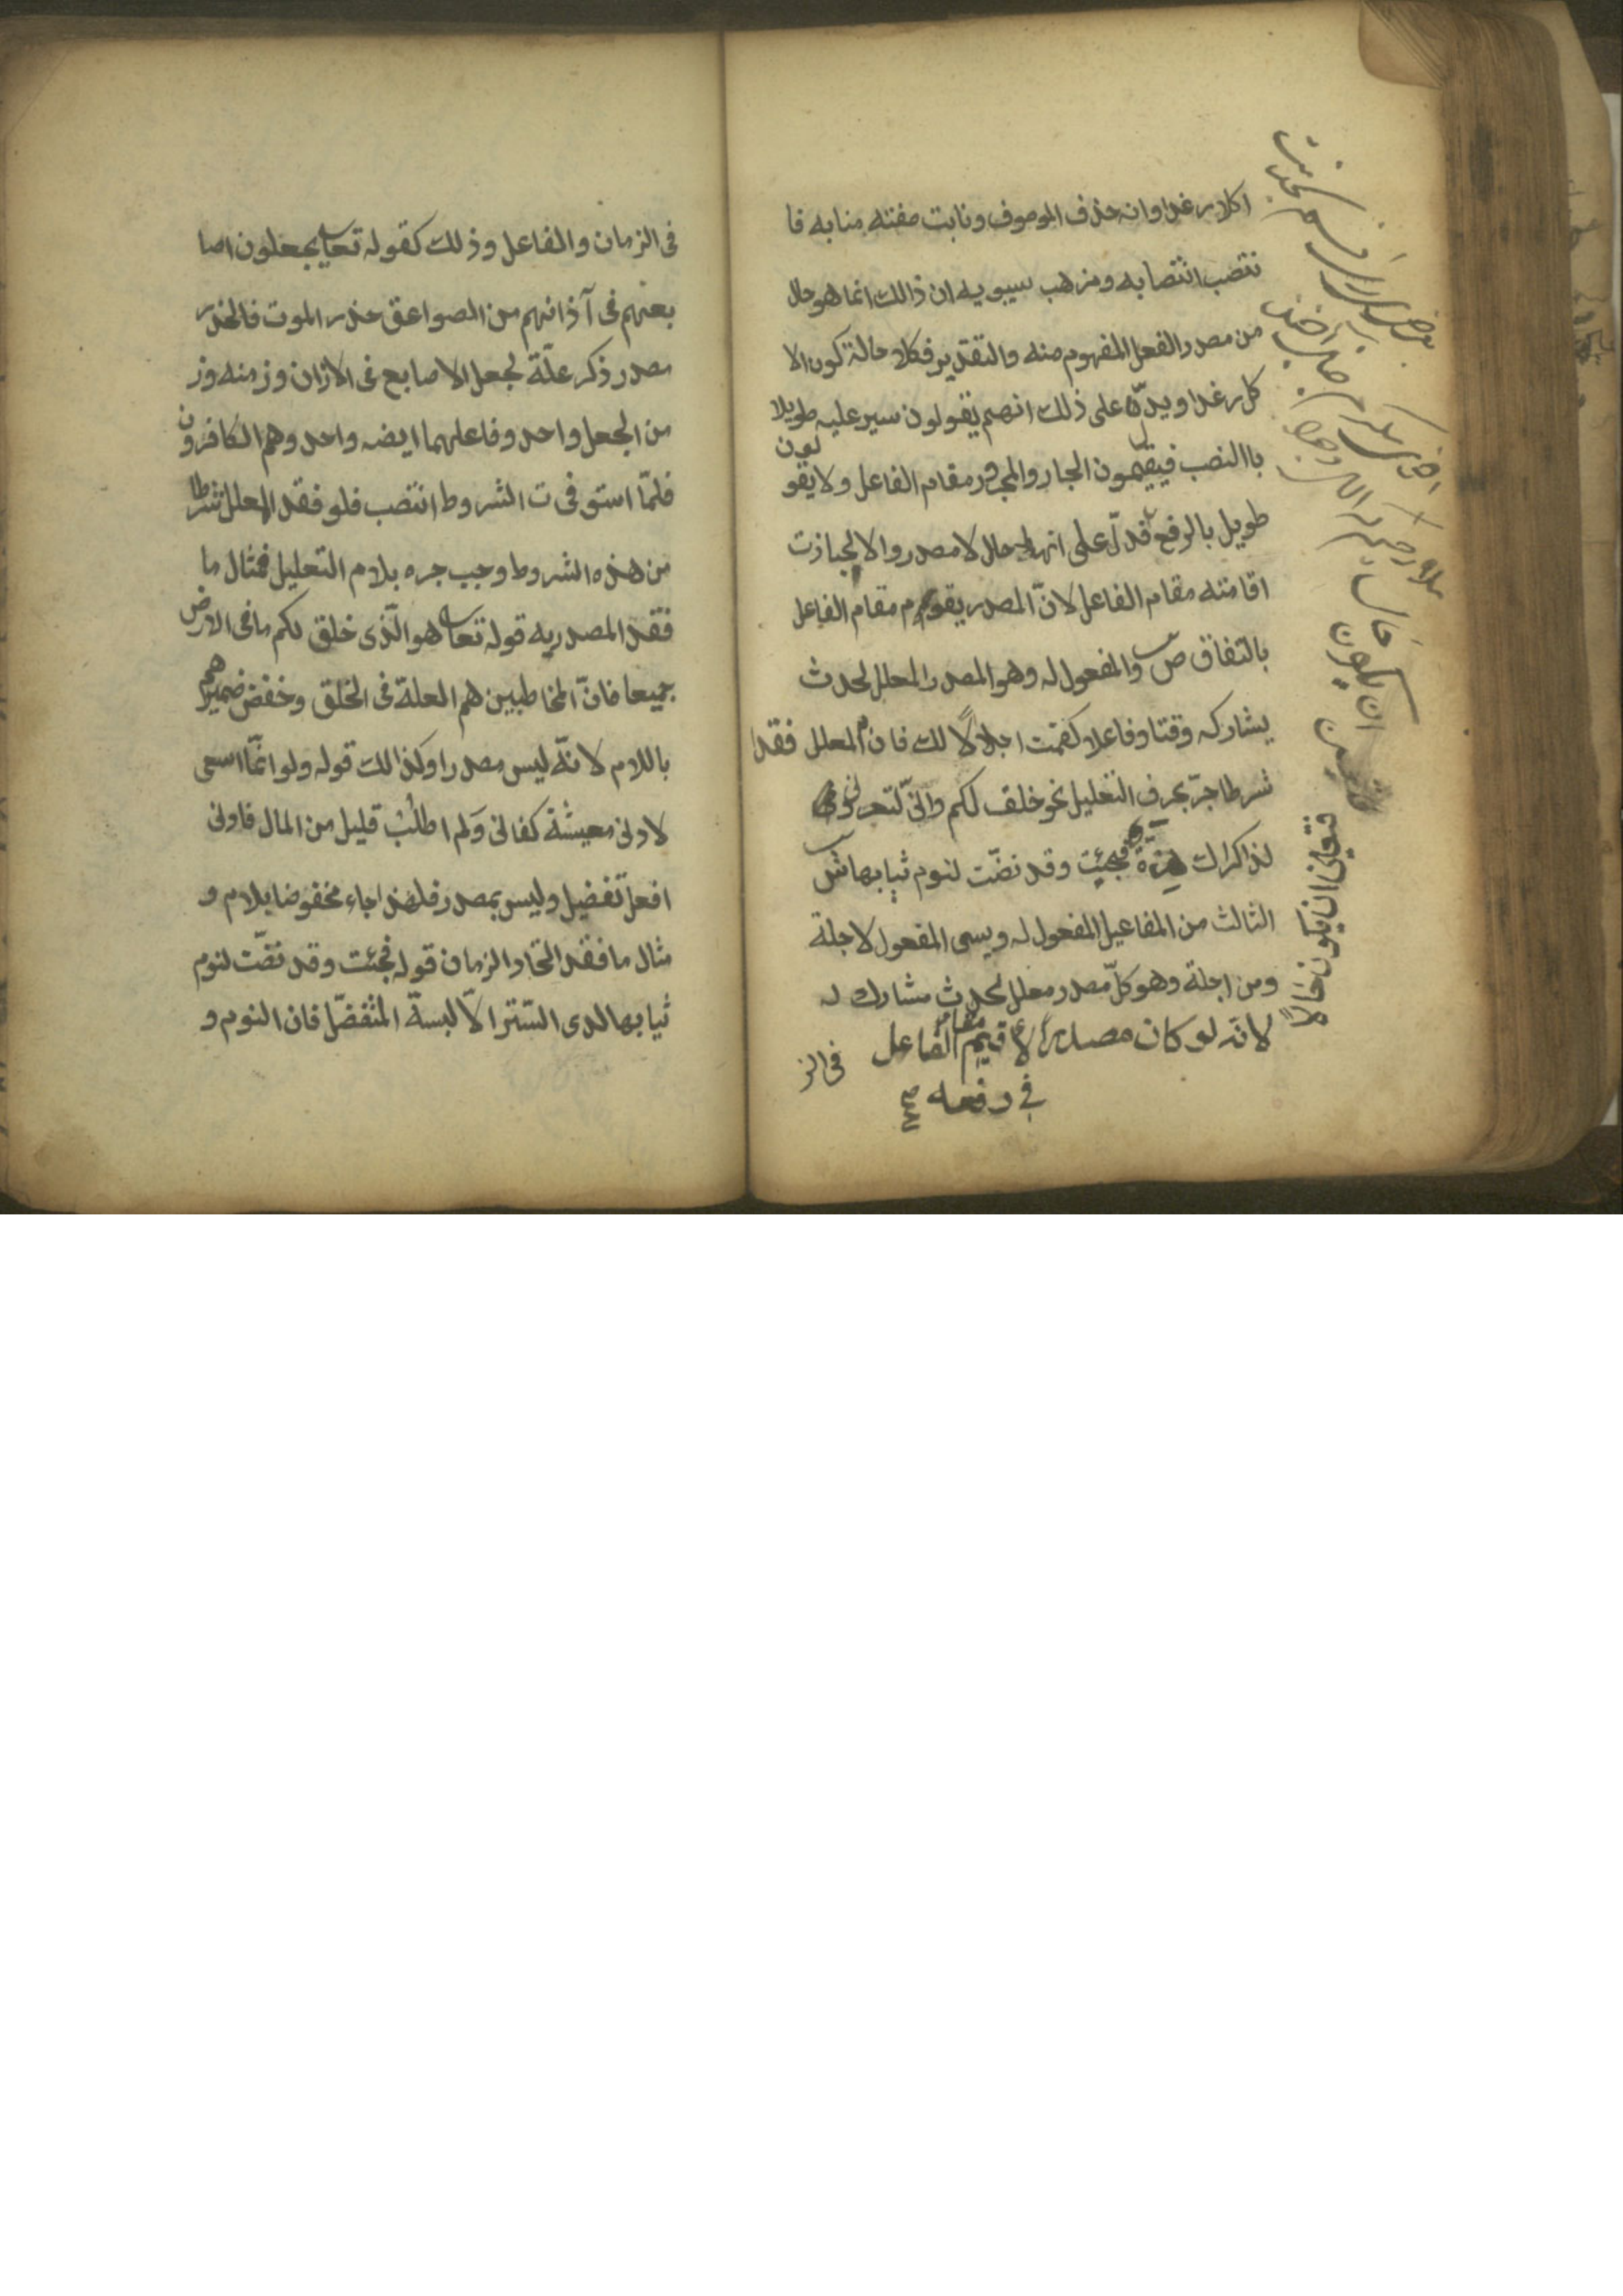 اكلا رغدا وانه حذف الموصوف ونابت صفته منابه فا
نتصب انتصابه ومذهب سيبويه ان ذالك انما هو حال
من مصدر الفعل المفهوم منه والتقدير فكلا حالة كون الا
كل رغدا ويدلّ على ذلك انهم يقولون سير عليه طويلا
باالنصب فيقيمون الجار والمجرور مقام الفاعل ولا يقو لون
طويل بالرفع فدلّ على انه حال لا مصدر والا لجازت
اقامته مقام الفاعل لانّ المصدر يقوم مقام الفاعل
بالتفاق ص والمفعول له وهو المصدر المعلل لحدث
يشاركه وقتا وفاعلا كقمت اجلالًا لك فان المعلل فقد
شرطا جرّ بحرف التعليل نحو خلق لكم وانّي لتعروني
لذاكراك هزّة فجئت وقد نضّت لنوم ثيابها ش
الثالث من المفاعيل المفعول له ويسمى المفعول لاجلة
ومن اجلة وهو كلّ مصدر معلل لحدث مشارك له
لانّه لو كان مصدرًا لأقيم مقام الفاعل
في رفعه
فى الز
فتعين ان يكون حالًا
فى الزمان والفاعل وذلك كقوله تعا يجعلون اصا
بعهم فى آذانهم من الصواعق حذر الموت فالحذر
مصدر ذكر علّة لجعل الاصابع فى الاذان وزمنه وز
من الجعل واحد وفاعلهما ايضه واحد وهم الكافرون
فلمّا استوفى ت الشروط انتصب فلو فقد المعلل شرطا
من هذه الشروط وجب جره بلام التعليل فمثال ما
فقد المصدريه قوله تعا هو الّذى خلق لكم ما فى الارض
جميعا فانّ المخاطبين هم العلة فى الخلق وخفض ضميرهم
باللام لانّه ليس مصدرا وكذالك قوله ولو انّما اسعى
لادنى معيشة كفانى وَلم اطلُب قليل من المال فاولى
افعل تفضيل وليس بمصدر فلهذا جاء مخفوضا بلام و
مثال ما فقد اتحاد الزمان قوله فجئت وقد نضّت لنوم
ثيابها لدى السّتر الّا لبسةّ المتفضّل فان النوم و